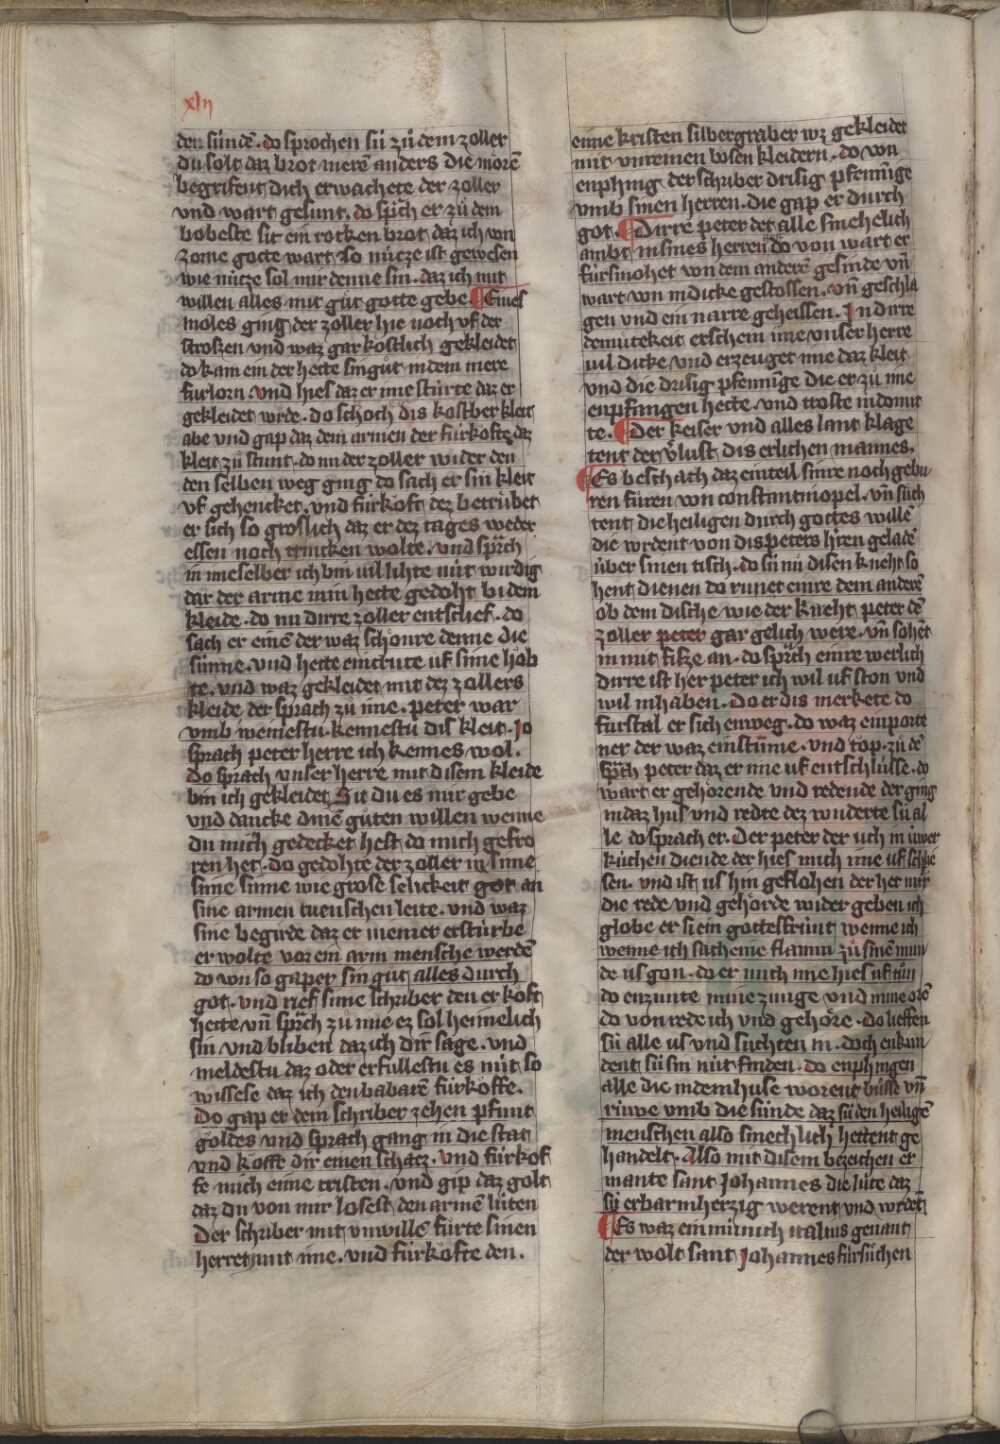 xlij
den sündē · do sprochen sü zů dem zoller
du solt daz brot merē anders die morē
begrifent dich erwachete der zoller
vnd wart gesunt. do sp̄ch er zů dem
bobeste sit ein rocken brot daz ich von
zorne gotte warf so nücze ist gewesen
wie nücze sol mir denne sin · daz ich mit
willen alles min gůt gotte gebe ¶ Eines
moles ging der zoller hie noch vf der
stroszen vnd waz gar kostlich gekleidet
do kam ein der hette sin gůt in dem mere
furlorn · vnd hies daz er ime stürte daz er
gekleidet wrde · do schoch dis kostber kleit
abe vnd gap daz dem armen der fürkofte daz
kleit zů stunt · do nu der zoller wider den
den selben weg ging do sach er sin kleit
vf gehencket · vnd fürkoft dez betrůbet
er sich so groslich daz er dez tages weder
essen noch trincken wolte · vnd sprach
in ime selber ich bin uil lihte nüt wirdig
dar der arme min hette gedoht bi dem
kleide · do nu dirre zoller entslief · do
sach er einē der waz schonre denne die
sünne · vnd hette ein crütze uf sime hōb
te · vnd waz gekleidet mit dez zollers
kleide der sprach zů ime · peter war
vmb weinestu · kennestu dis kleit · Jo
sprach peter herre ich kennes wol ·
Do sprach vnser herre mit disem kleide
bin ich gekleidet Sit du es mir gebe
vnd dancke dinē gůten willen wenne
du mich gedecket hest do mich gefro
ren het · do gedohte der zoller in sime
sime sinne wie grose selickeit got an
sine armen menschen leite · vnd waz
sine begirde daz er niemer erstürbe
er wolte vor ein arm mensche werdē
do von so gap er sin gůt alles durch
got · vnd rief sime schriber den er koft
hette vn̄ sprach zů ime ez sol heimelich
sin vnd bliben daz ich dir sage · vnd
meldestu daz oder erfüllestu es nüt so
wissese daz ich den babarē fürkoffe.
Do gap er dem schriber zehen pfunt
goldes vnd sprach gang in die stat
vnd koffe dir einen schatz · vnd fürkof
fe mich eime cristen · vnd gip daz golt
daz du von mir losest den armē lüten
Der schriber mit vnwillē fürte sinen
herren mit ime · vnd fürkofte den ·
eime kristen silbergraber wz gekleidet
mit vnreinen bosen kleidern · do von
enphing der schriber drisig pfennige
vmb sinen herren · die gap er durch
got · ¶ Dirre peter det alle smehelich
ambt in sines herren do von wart er
fürsmohet von dem anderē gesinde vn̄
wart von in dicke gestossen · vn̄ geschla
gen vnd ein narre geheissen · In dirre
demütekeit erschein ime vnser herre
uil dicke vnd erzeuget ime daz kleit
vnd die drisig pfennige die er zů ime
enpfangen hette · vnd troste in domit
te · ¶ Der keiser vnd alles lant klage
tent der v̾lust dis erlichen mannes ·
¶ Es beschach daz ein teil sinre nochgebu
ren fůren von constantinopel · vn̄ sůch
tent die heiligen durch gottes willē
die wrdent von dis peters h̾ren geladē
über sinen tisch · do sü nů disen kneht so
hent dienen do runet einre dem anderē
ob dem dische wie der kneht peter dē
zoller peter gar gelich were · vn̄ sohēt
in mit flisze an · do sprach einre werlich
dirre ist her peter ich wil uf ston vnd
wil in haben · Do er dis merkete do
furstal er sich enweg · do waz ein porte
ner der waz ein stumme · vnd top · zů dē
sp̄ch peter daz er ime uf entschlüsse · do
wart er gehorende vnd redende der ging
in daz hus vnd redte dez wuderte sü al
le do sprach er · Der peter der üch in üwer
kuchen diende der hies mich ime uf schlie
sen · vnd ist us hin geflohen der het mir
die rede vnd gehorde wider geben ich
globe er si ein gottes frünt wenne ich
wenne ich sach eine flamm zů sinē mun
de us gon · do er mich ime hies uf tůn
do enzunte mine zunge vnd mine orē
do von rede ich vnd gehore · Do lieffen
sü alle us vnd suchten in · doch enkun
dent sü sin nüt finden · do enphingen
alle die in dem huse worent bůsse vn̄
rüwe vmb die sünde daz sü den heiligē
menschen also smechlich hettent ge
handelt · Also mit disem bezeichen er
mante sant Johannes die lüte daz
sü erbarmherzig werent vnd wrdent
¶ Es waz ein münich italius genant
der wolt sant Johannes fürsůchen